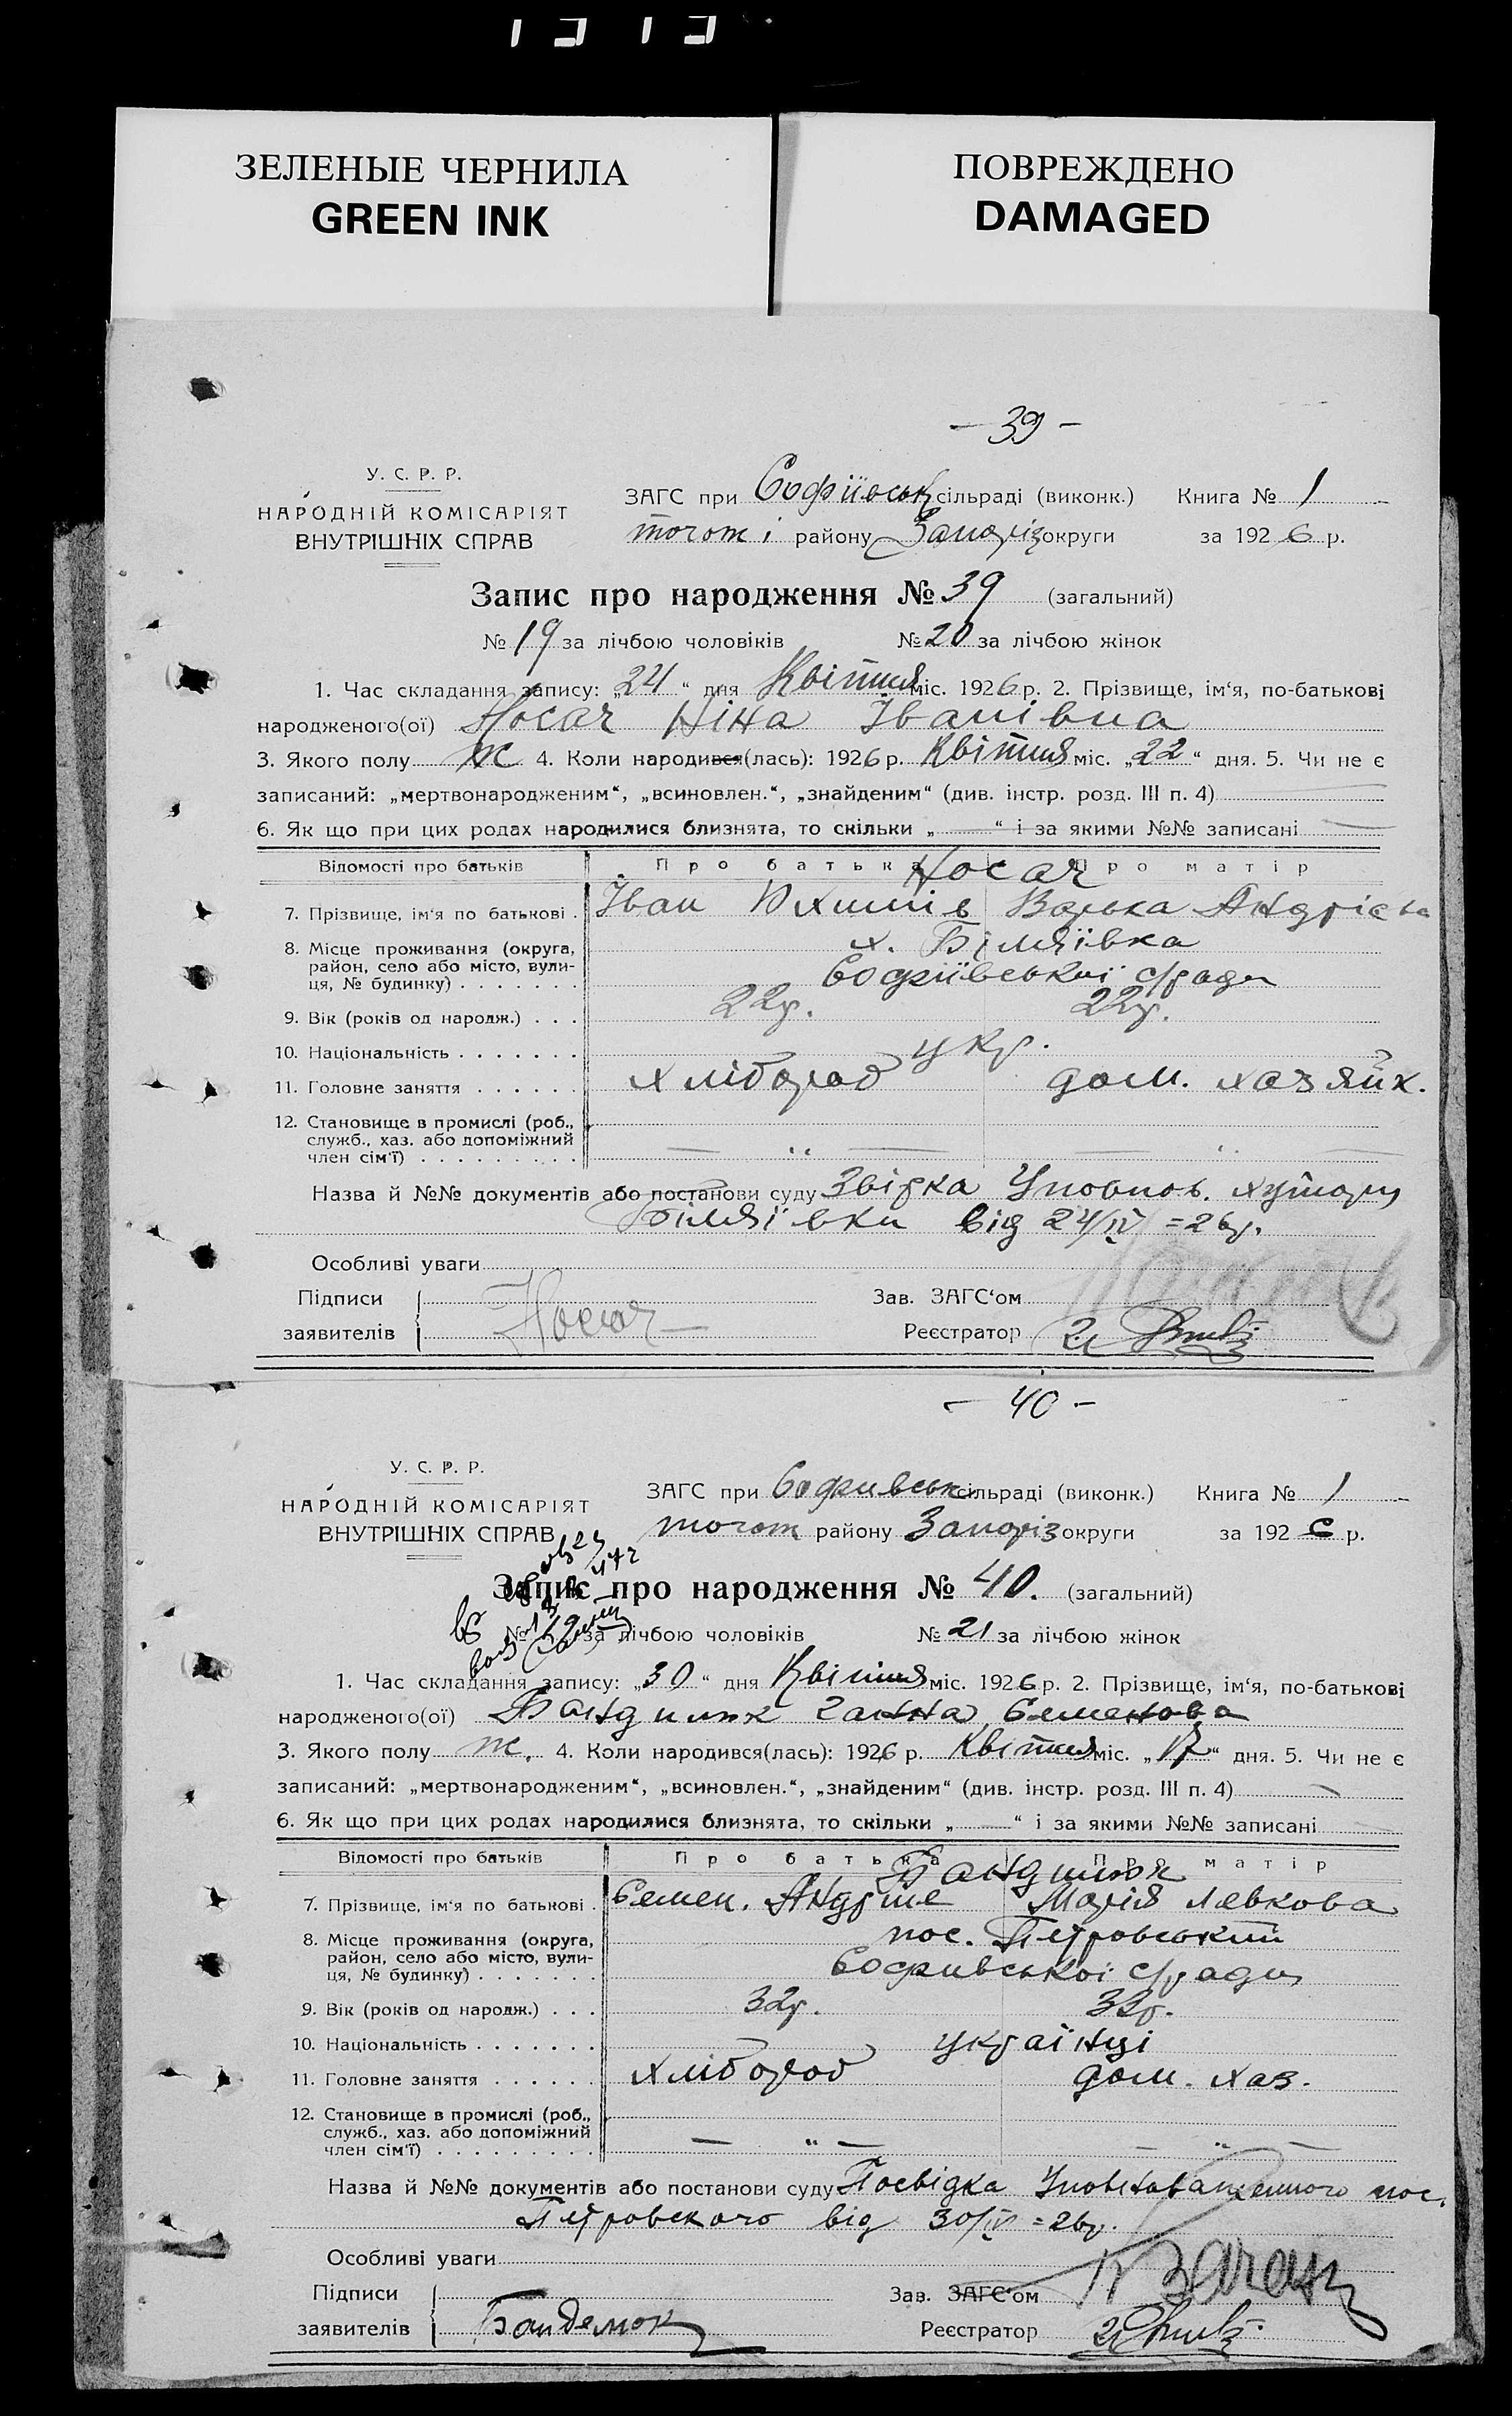 ЗЕЛЕНЫЕ ЧЕРНИЛА
GREEN INK
ПОВРЕЖДЕНО
DAMAGED
— 39 —
У. С. Р. Р.
НАРОДНІЙ КОМІСАРІЯТ
ВНУТРІШНІХ СПРАВ
ЗАГС при Софіївськ сільраді (виконк.) Книга № 1
тогож і району Запоріз округи за 1926 р.
Запис про народження № 39 (загальний)
№ 19 за лічбою чоловіків № 20 за лічбою жінок
1. Час складання запису: „24“ дня Квітня міс. 1926 р. 2. Прізвище, ім‘я, по-батькові
народженого(ої) Носач Ніна Іванівна
3. Якого полу ж 4. Коли народився(лась): 1926 р. Квітня міс. „22“ дня. 5. Чи не є
записаний: „мертвонародженим“, „всиновлен.“, „знайденим“ (див. інстр. розд. III п. 4)
6. Як що при цих родах народилися близнята, то скільки „ — “ і за якими №№ записані —
Відомості про батьків Про батька Про матір
Носач
7. Прізвище, ім‘я по батькові . Іван Варька Андрієва
8. Місце проживання (округа, район, село або місто, вулиця, № будинку) х. Біляївка
Софіївської с/ради
9. Вік (років од народж.) . . . 22р. 22р.
10. Національність . . . . . . . укр.
11. Головне заняття . . . . . . хлібороб дом. хазяйк.
12. Становище в промислі (роб.,
служб., хаз. або допоміжний
член сім‘ї) . . . . . . . . . — „ — — „ —
Назва й №№ документів або постанови суду Звідка Уповнов. хутору
Біляївки від 24/IV = 26р.
Особливі уваги
Підписи
заявителів Носач
Зав. ЗАГС‘ом
Реєстратор
— 40 —
У. С. Р. Р.
НАРОДНІЙ КОМІСАРІЯТ
ВНУТРІШНІХ СПРАВ
ЗАГС при Софиівськ сільраді (виконк.) Книга № 1
тогож району Запоріз округи за 1926 р.
Запис про народження № 40. (загальний)
№ 19 за лічбою чоловіків № 21 за лічбою жінок
1. Час складання запису: „30“ дня Квітня міс. 1926 р. 2. Прізвище, ім‘я, по-батькові
народженого(ої) Бандилюк Ганна Семенова
3. Якого полу ж. 4. Коли народився(лась): 1926 р. Квітня міс. „17“ дня. 5. Чи не є
записаний: „мертвонародженим“, „всиновлен.“, „знайденим“ (див. інстр. розд. III п. 4) —
6. Як що при цих родах народилися близнята, то скільки „ — “ і за якими №№ записані
Відомості про батьків Про батька Про матір
7. Прізвище, ім‘я по батькові . Семен. Марія Левкова
8. Місце проживання (округа, район, село або місто, вулиця, № будинку) пос. Петровський
Софиівської с/ради
9. Вік (років од народж.) . . . 32р. 32р.
10. Національність . . . . . . . українці
11. Головне заняття . . . . . . хлібороб дом. хаз.
12. Становище в промислі (роб.,
служб., хаз. або допоміжний
член сім‘ї) . . . . . . . . . — „ — — „ —
Назва й №№ документів або постанови суду Посвідка Уповноваженного пос.
Петровского від 30/IV = 26р.
Особливі уваги
Підписи
заявителів
Зав. ЗАГС‘ом
Реєстратор